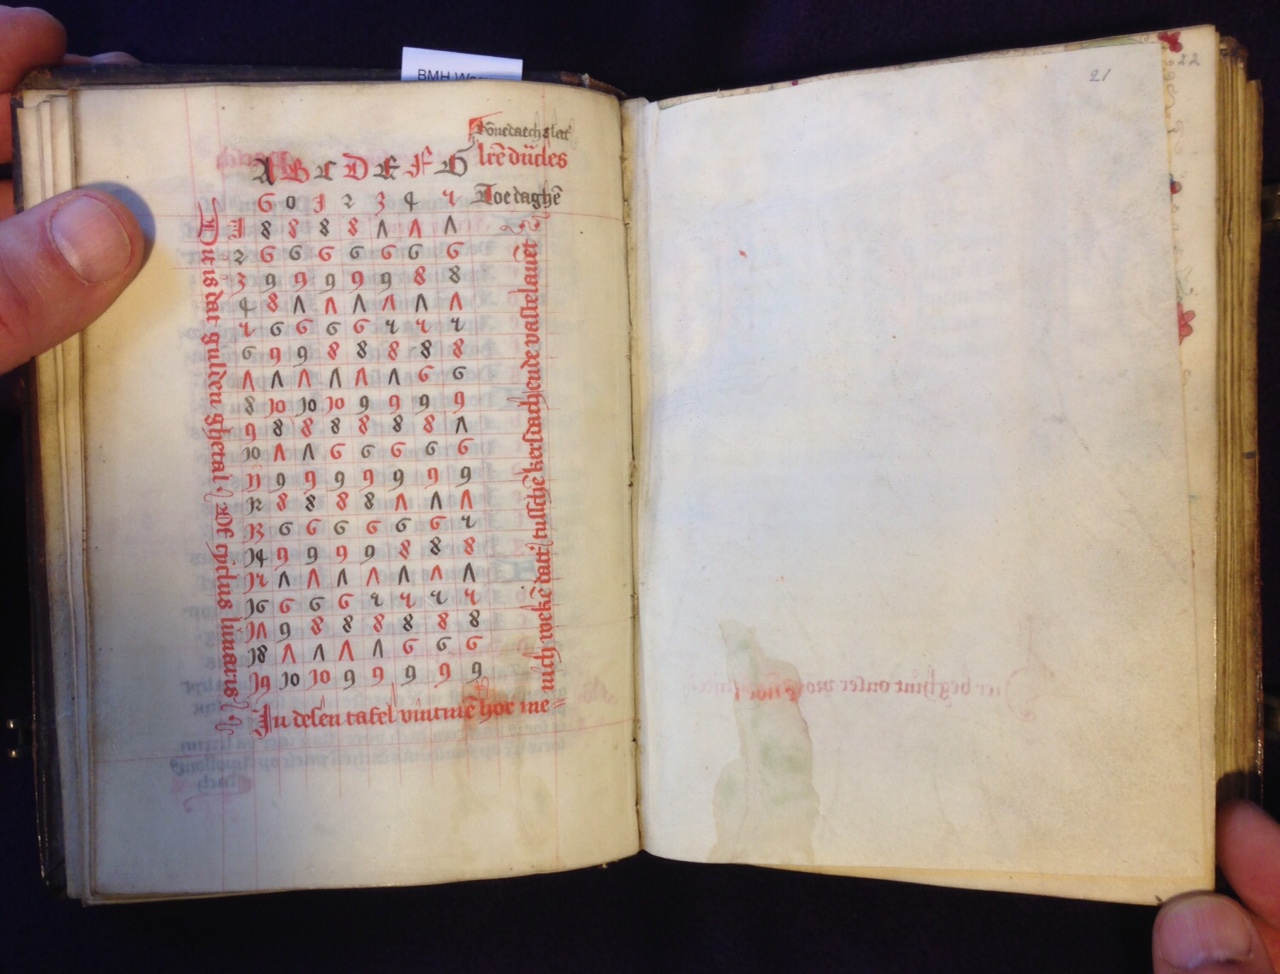 BMH
Sonedaechs lett'
A B C D E F G
6 0 1 2 3 4 5 Toe daghē
1 8 8 8 8 7 7 7
2 6 6 6 6 6 6 6
3 9 9 9 9 9 8 8
4 8 7 7 7 7 7 7
5 6 6 6 6 5 5 5
6 9 9 8 8 8 8 8
7 7 7 7 7 7 6 6
8 10 10 10 9 9 9 9
9 8 8 8 8 8 8 7
10 7 7 6 6 6 6 6
11 9 9 9 9 9 9 9
12 8 8 8 8 7 7 7
13 6 6 6 6 6 6 5
14 9 9 9 9 8 8 8
15 7 7 7 7 7 7 7
16 6 6 6 5 5 5 5
17 9 8 8 8 8 8 8
18 7 7 7 7 6 6 6
19 10 10 9 9 9 9 9
Dit is dat gulden ghetal Of ciclus lunaris
In desen tafel vintmē hoe me=
nich wekē datt tusschē kersdach ende vastelauet
21
22